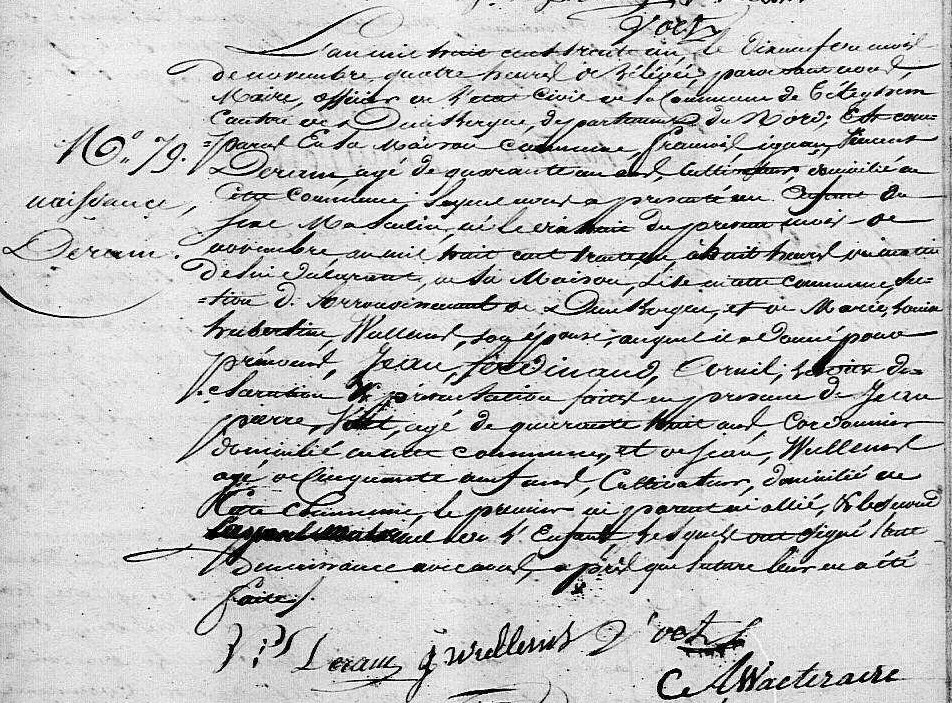 D'oct
L'an mil huit cent trente un, le dixneuf du mois
de novembre, quatre heures de relevée, pardevant nous,
Maire, officier de l'état Civil de la Commune de Téteghem
Canton de Dunkerque, département du Nord; Est com-
N.° 79. =paru En la Maison Commune, François, ignace, Vincent
Deram, agé de quarante un ans, Cultivateur domicilié en
naissance, Cette Commune lequel nous a presenté un Enfant du
Sexe Masculin, né le dix huit du présent mois de
Deram. novembre mil huit cent trente un à huit heures du matin
de lui déclarant, en sa Maison, sise en cette commune, Sec-
=tion d. Arrondissement de Dunkerque, et de Marie, Louise
hubertine, Wullens, son épouse, auquel il a donné pour
prénoms, Jean, ferdinand, Cornil, lesdites dé-
=claration & présentation faites en présence de Jean
pierre, agé de quarante huit ans Cordonnier
domicilié en cette commune, et de Jean, Wullens
agé de Cinquante ans, Cultivateur, domicilié en
Cette Commune, le premier ni parent ni allié, & le second
maternel de l'Enfant lesquels ont signé l'acte
De naissance avec nous, après que lecture leur en a été
faite./.
Deram J Wullens D'oct
C A Waeteraere